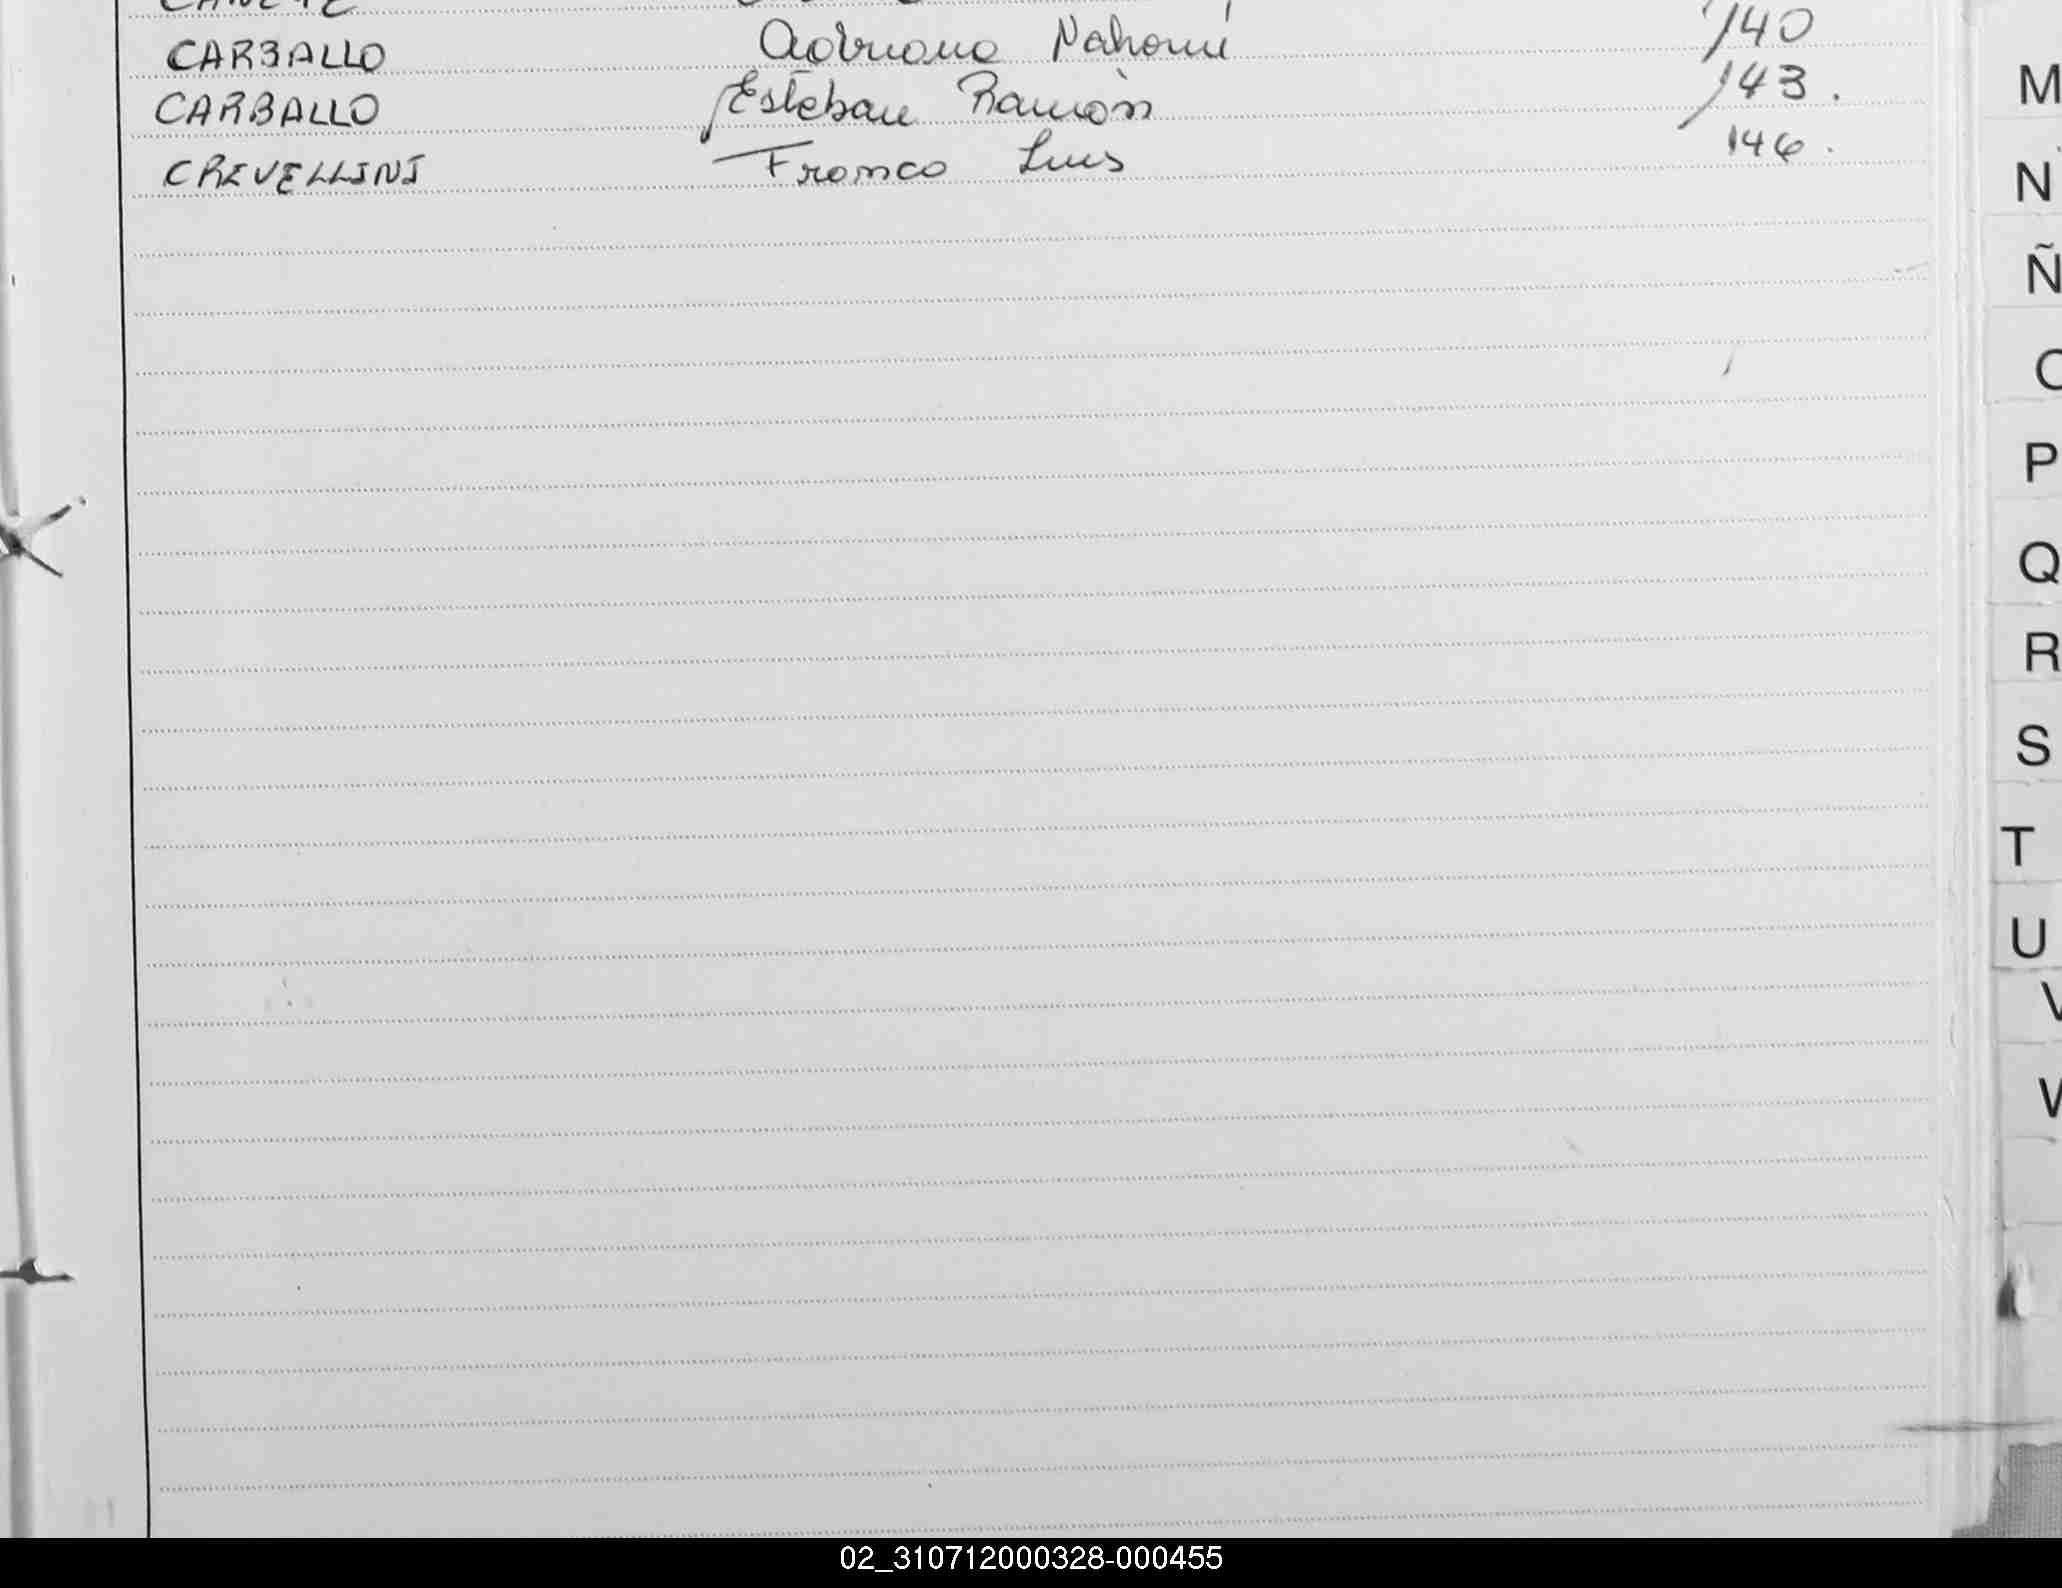 CARBALLO Adriana Nahomí 140
CARBALLO Esteban Ramón 143.
CRIVELLINI Franco Luis 146.
M
N
Ñ
O
P
Q
R
S
T
U
V
02_310712000328-000455